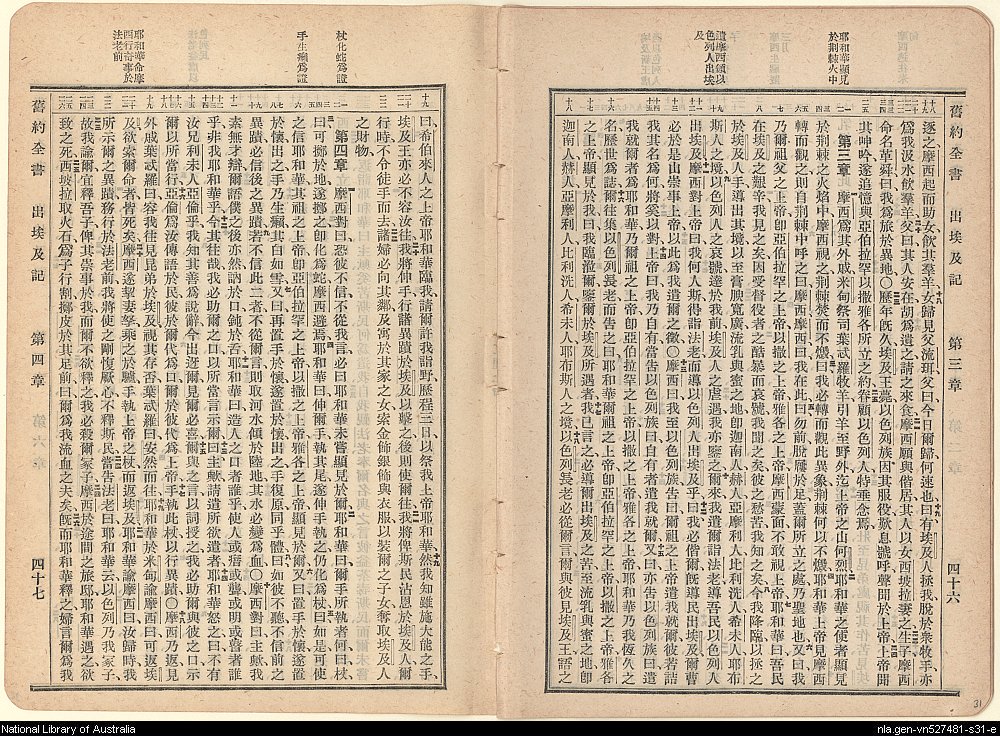 耶和華顯見
於荊棘火中
遣摩西領以
色列人出埃
及
舊約全書 出埃及記 第三章 四十六
逐之摩西起而助女飲其羣羊女歸見父流珥父曰今日爾歸何速也曰有埃及人拯我脫於衆牧手亦
爲我汲水飲羣羊父曰其人安在胡爲遺之請之來食摩西願與偕居其人以女西坡拉妻之生子摩西
命名革舜曰我爲旅於異地〇歷年旣久埃及王薨以色列族因其服役歎息號呼聲聞於上帝上帝聞
其呻吟遂追憶與亞伯拉罕以撒雅各所立之約眷顧以色列人特垂念焉
第三章 摩西爲其外戚米甸祭司葉忒羅牧羊引羊至野外迄上帝之山何烈耶和華之使者顯見
於荊棘之火焰中摩西視之荊棘焚而不燬曰我必轉而觀此異象荊棘何以不燬耶和華上帝見摩西
轉而觀之則自荊棘中呼之曰摩西摩西曰我在此曰勿前脫屨於足蓋爾所立之處乃聖地也又曰我
乃爾祖父之上帝卽亞伯拉罕之上帝以撒之上帝雅各之上帝摩西蒙面不敢視上帝耶和華曰吾民
在埃及之艱辛我見之矣因受督役者之酷暴而哀號我聞之矣彼之愁苦我知之矣今我降臨以拯之
於埃及人手導出其境以至膏腴寬廣流乳與蜜之地卽迦南人赫人亞摩利人比利洗人希未人耶布
斯人之境以色列人之哀號達於我前埃及人之虐遇我亦鑒之爾來我遣爾詣法老導吾民以色列人
出埃及摩西對上帝曰我何人斯得詣法老而導以色列人出埃及乎曰我必偕爾旣導民出埃及爾曹
必於是山崇事上帝以此爲我遣爾之徵〇摩西曰我至以色列族告曰爾祖之上帝遣我就爾彼若詰
我其名爲何將奚以對上帝曰我乃自有當告以色列族曰自有者遣我就爾又曰亦告以色列族曰
耶和華乃爾祖之上帝卽亞伯拉罕之上帝以撒之上帝雅各之上帝遣我就爾耶和華乃我恆久之
名歷世以爲誌爾往集以色列長老而告之曰耶和華爾祖之上帝卽亞伯拉罕以撒雅各
之上帝顯見於我曰我臨格爾鑒爾於埃及所遇者我已言之必導爾出埃及之苦至流乳與蜜之地卽
迦南人赫人亞摩利人比利洗人希未人耶布斯人之境以色列長老必從爾言爾與彼見埃及王語之
杖化蛇爲證
手生癩爲證
耶和華命摩
西行奇事於
法老前
曰希伯來人之上帝耶和華臨我請爾許我詣野歷程三日以祭我上帝耶和華然我知雖施大能之手
埃及王亦必不容汝往我將伸手行諸異蹟於埃及以擊之後則使爾往我將俾斯民沾恩於埃及人爾
行時不令徒手而去諸婦必向其鄰及寓於其家之女索金飾銀飾與衣服以裝爾之子女奪取埃及人
之財物
第四章 摩西對曰恐彼不信不從我言必曰耶和華未嘗顯見於爾耶和華曰爾手所執者何曰杖
曰可擲於地遂擲之卽化爲蛇摩西避焉耶和華曰伸爾手執其尾遂伸手執之仍化爲杖曰如是可使
之信耶和華其祖之上帝卽亞伯拉罕之上帝以撒之上帝雅各之上帝顯見於爾又曰置手於懷遂置
於懷出之手乃生癩其白如雪又曰再置手於懷遂置於懷出之手復原同乎體曰如彼不聽爾不信前之
異蹟必信後之異蹟若不信此二者不從爾言則取河水傾於陸地其水必變爲血〇摩西對曰主歟我
素無才辯爾語僕之後亦然訥於口鈍於舌耶和華曰造人之口者誰乎使人或瘖或聾或明或瞽者誰
乎非我耶和華乎今其往哉我必助爾之口以所當言示爾曰主歟請遣所欲遣者耶和華怒之曰不有
汝兄利未人亞倫乎我知其善爲說辭今出迓爾見爾必喜爾與之言以詞授之我必助爾與彼之口示
爾以所當行亞倫爲汝傳語於民彼於爾代爲口爾於彼代爲上帝手執此杖以行異蹟〇摩西乃返見
外戚葉忒羅曰容我往見昆弟於埃及視其存否葉忒羅曰安然而往耶和華於米甸諭摩西曰可返埃
及欲索爾命者皆死矣摩西遂挈妻孥乘之於驢手執上帝之杖而返埃及耶和華諭摩西曰汝歸時我
所示爾之異蹟務行於法老前我將使之剛愎厥心不釋斯民當告法老曰耶和華云以色列乃我冢子
故我諭爾宜釋吾子俾其崇事於我而爾不欲釋之我必殺爾冢子摩西於途間之旅邸耶和華遇之欲
致之死西坡拉取火石爲子行割擲皮於其足前曰爾爲我流血之夫矣旣而耶和華釋之婦言爾爲我
舊約全書 出埃及記 第四章 四十七
31
National Library of Australia
nla.gen-vn527481-s31-e